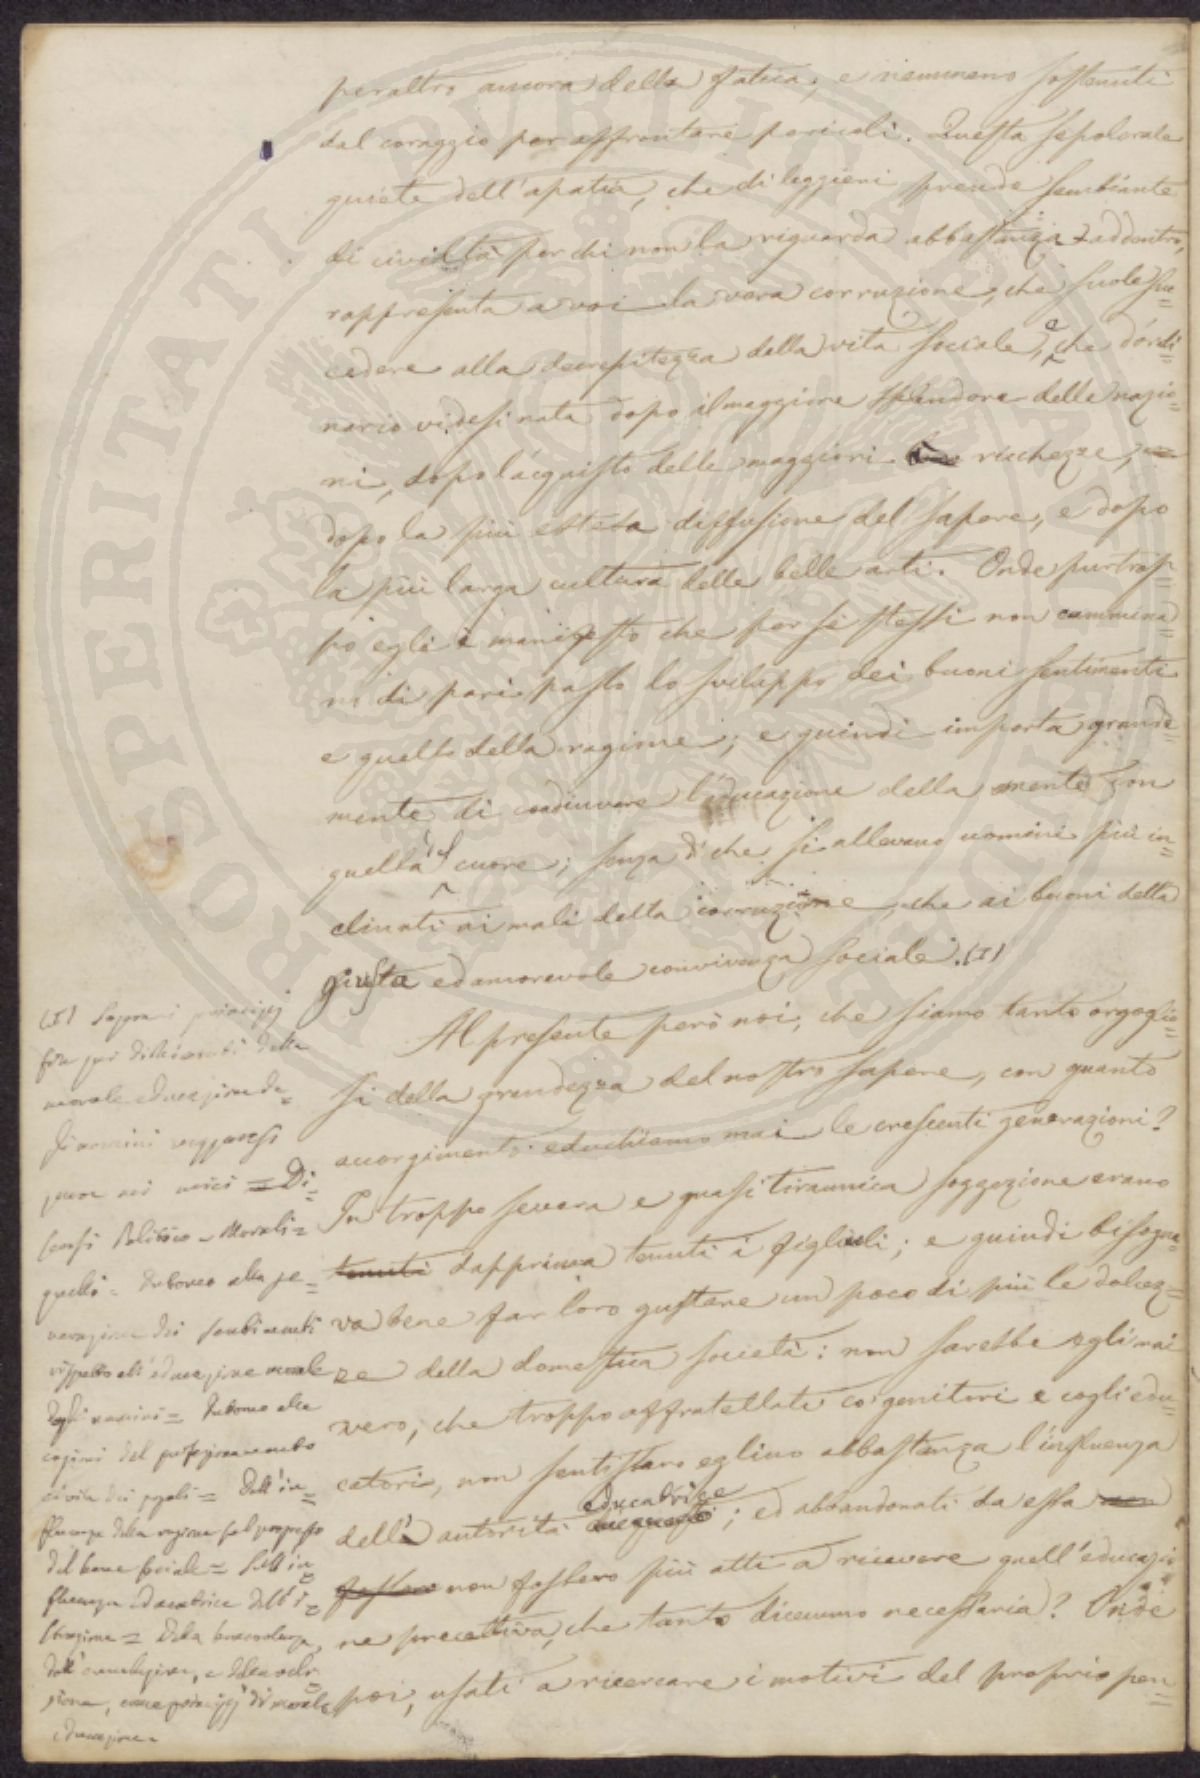 peraltro ancora della fatica, e nemmeno sostenuti
dal coraggio per affrontare pericoli. Questa sepolcrale
quiete dell'apatia, che di leggieri prende sembiante
di civiltà per chi non la riguarda abbastanza addentro,
rappresenta a voi la vera corruzione, che suole suc=
cedere alla decrepitezza della vita sociale, e che d'ordi=
nario videsi nata dopo il maggiore splendore delle nazio=
ni, dopo l'acquisto delle maggiori ricchezze,
dopo la più estesa diffusione del sapere, e dopo
la più larga cultura delle belle arti. Onde purtrop=
pò egli è manifesto che per sè stessi non cammina=
no di pari passo lo sviluppo dei buoni sentimenti
e quello della ragione; e quindi importa grande=
mente di coadiuvare l'educazione della mente con
quella del cuore; senza di che si allevano uomini più in=
clinati ai mali della corruzione, che ai buoni della
giusta ed amorevole convivenza sociale. (I)
Al presente però noi, che siamo tanto orgoglio=
si della grandezza del nostro sapere, con quanto
accorgimento educhiamo mai le crescenti generazioni?
In troppo severa e quasi tirannica soggezione erano
tenuti dapprima tenuti i figliuoli; e quindi bisogna=
va bene far loro gustare un poco di più le dolcez=
ze della domestica società: non sarebbe egli mai
vero, che troppo affratellati co' genitori e cogli edu=
catori, non sentissero eglino abbastanza l'influenza
dell'autorità educatrice; ed abbandonati da essa non
fossero non fossero più atti a ricevere quell'educazio=
ne precettiva, che tanto dicemmo necessaria? Onde
poi, usati a ricercare i motivi del proprio pen=
(I) Sopra i principj
morale educazione de=
gli uomini veggansi
pure nei miei = Di=
scorsi Politico-Morali=
quelli = Intorno alla ge=
nerazione dei sentimenti
rispetto all'educazione morale
degli uomini = Intorno alle
cagioni del perfezionamento
civile dei popoli = Dell'in=
fluenza della ragione sul progresso
del bene sociale = Sull'in=
fluenza educatrice dell'i=
struzione = Della benevolenza,
dell'emulazione, e dell'
come principj di morale
educazione.